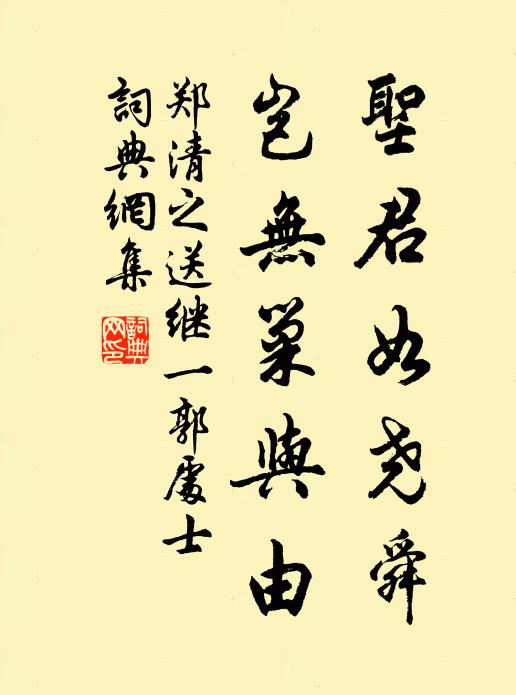 聖君如尧舜
豈無巢與由
郑清之送继一郭處士
詞典網集
詞典網印